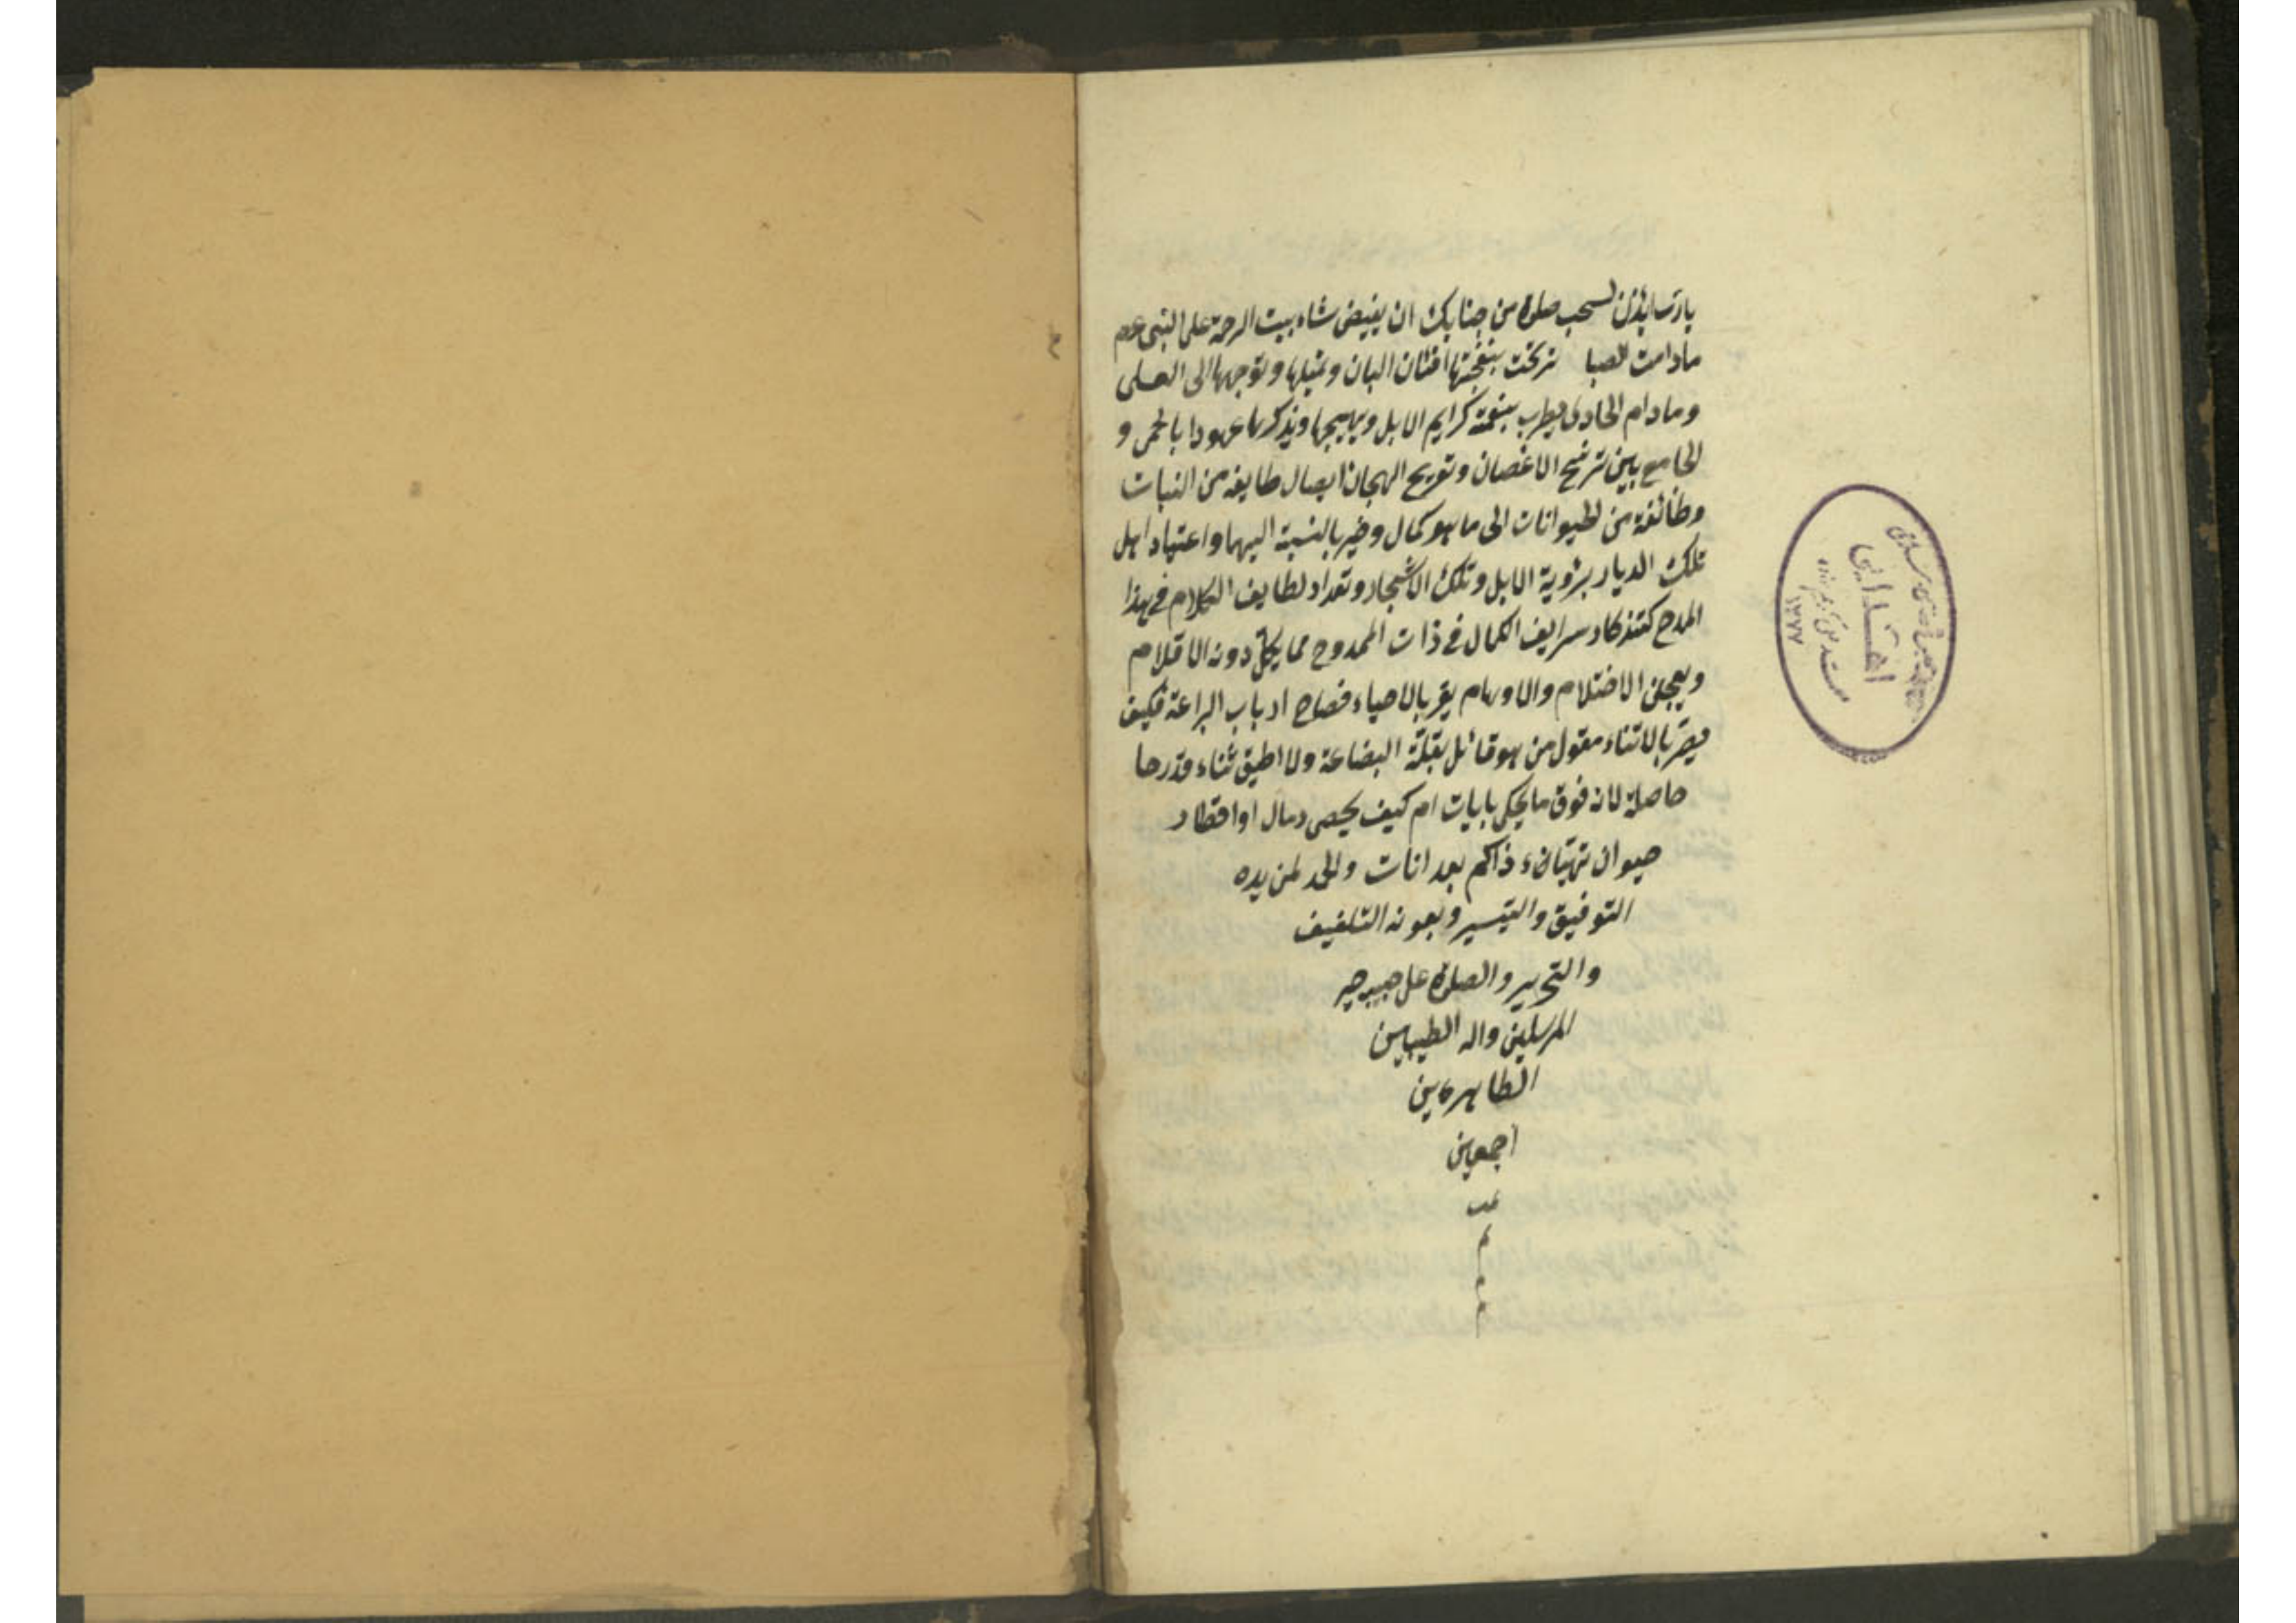 يا رب ائذن لسحب صلوة من جنابك ان يفيض شاه بيت الرحمة على النبى عم
مادامت الصبا ترنحت بنفحتها افنان البان وتميلها وتوجهها الى العلى
ومادام الحادى يطرب بنغمة كرايم الابل ويهيجها ويذكرها عهودا بالحمى و
الجامع بين ترنيح الاغصان وتفريح الهجان ايصال طايفة من النبات
وطائفة من الحيوانات الى ما هو كمال وخير بالنسبة اليهما واعتياد اهل
تلك الديار برؤية الابل وتلك الاشجار وتعداد لطايف الكلام فى هذا
المدح كتذكار شرايف الكمال فى ذات الممدوح مما يكل دونه الاقلام
ويعجز الاختلام والاوهام يقر بالاحياء فصاح ارباب البراعة فكيف
يقر بالاثناء مقول من هو قائل بقلة البضاعة ولا اطيق ثناء قدرها
حاصلة لانه فوق ما يحكى بابيات ام كيف يحصى رمال او اقطار
حيوان ذاكم بعد انات والحمد لمن يده
التوفيق والتيسير وبعونه التلفيف
والتحرير والصلوة على حبيبه خير
المرسلين واله الطيبين
الطاهرين
اجمعين
تمت
م
م
م
اهدايى
١٣٧٧